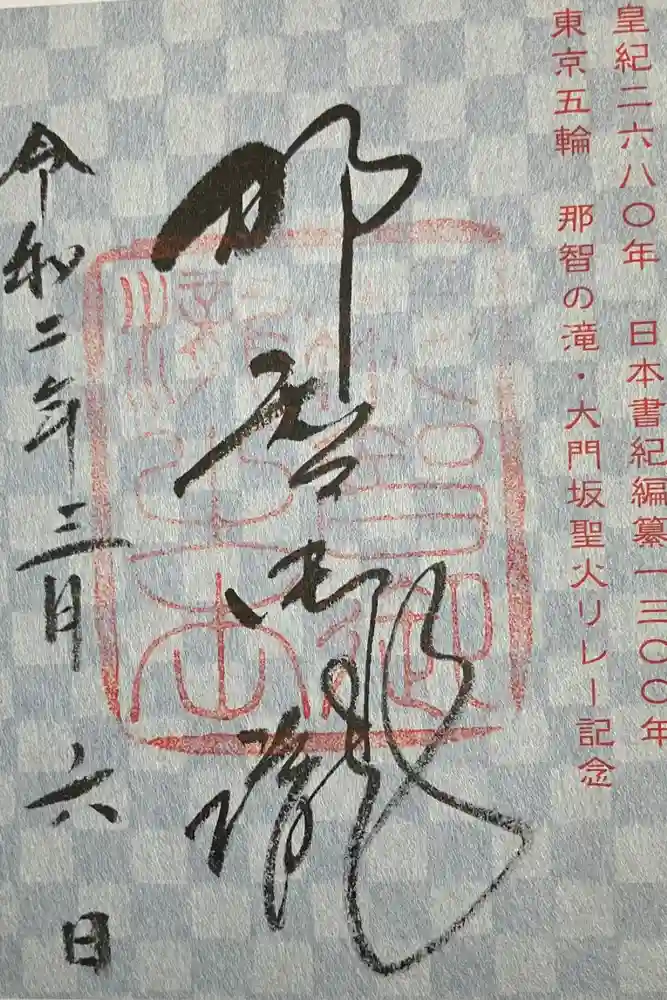 皇紀二六八〇年 日本書紀編纂一三〇〇年
東京五輪 那智の滝・大門坂聖火リレー記念
那智御瀧
令和二年三月六日